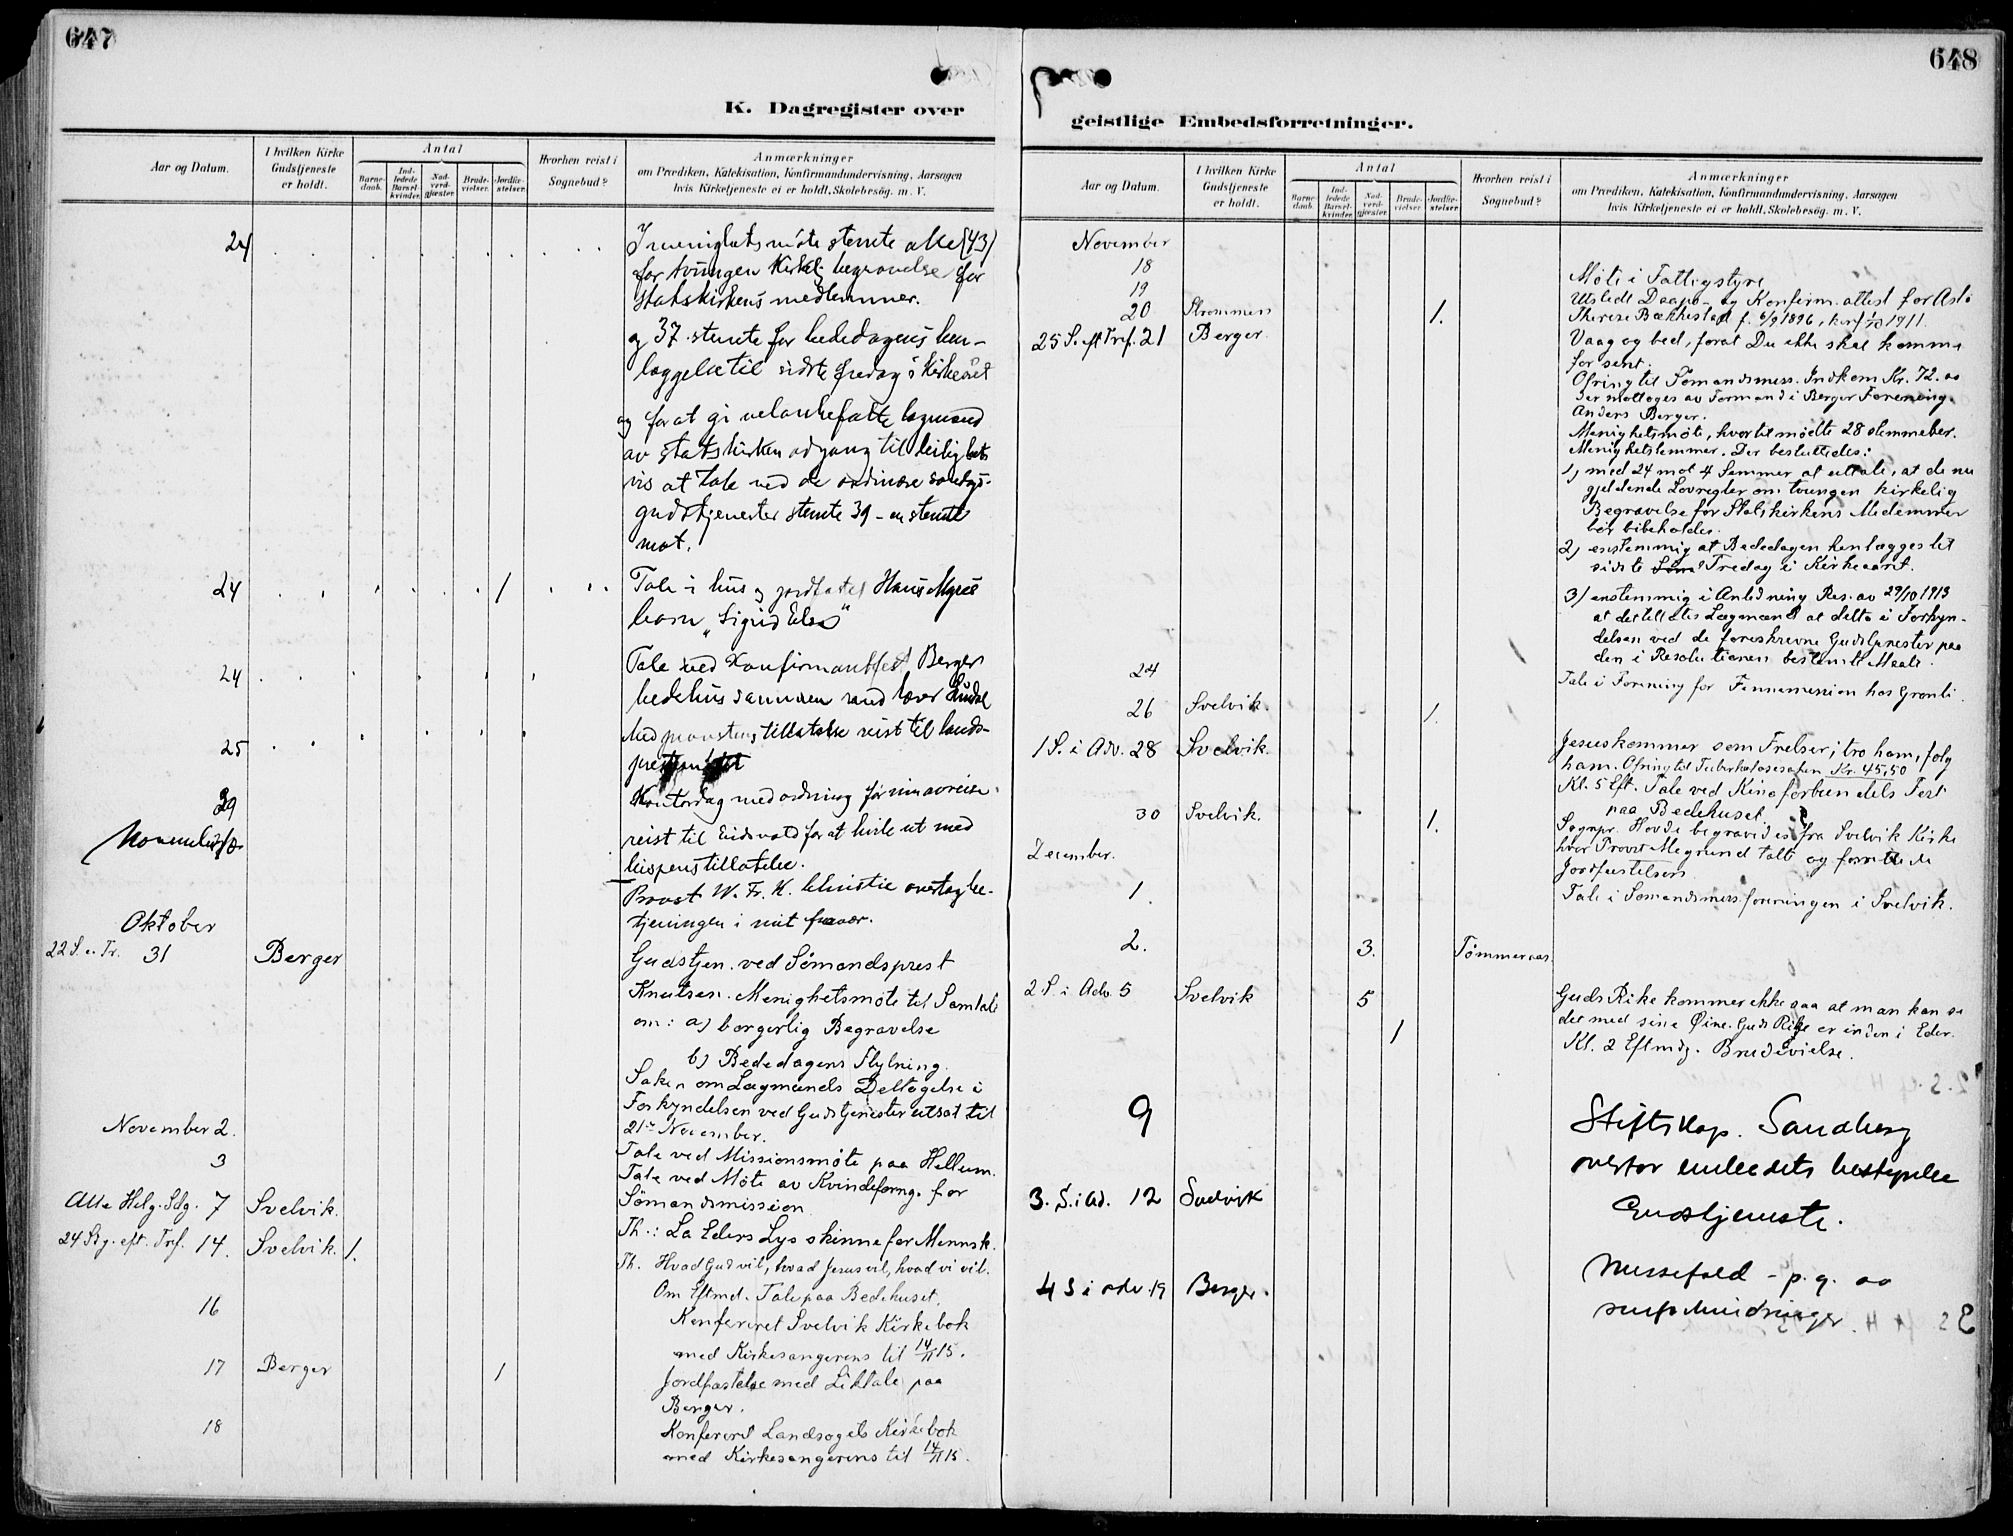 647
K. Dagregister over
Aar og Datum.
I hvilken Kirke Gudstjeneste er holdt.
Antal
Barne-daab.
Ind-ledede Barsel-kvinder.
Nad-verd-gjæster
Brude-vielser.
Jordfæ-stelser.
Hvorhen reist i Sognebud?
Anmærkninger
om Prædiken, Katekisation, Konfirmandundervisning, Aarsagen
hvis Kirketjeneste ei er holdt, Skolebesøg. m. V.
24 I menighetsmöte stemte alle (43)
for tvungen Kirkelig begravelse for
statskirkens medlemmer.
og 37 stemte for bededagens hen-
læggelse til sidste fredag i Kirkeaaret
og for at gi velanbefalte lægmænd
av statskirken adgang til leilighets
vis at tale ved de ordinære söndags-
gudstjenester stemte 39 - en stemte
mot.
24 1 Tale i hus og jordfæstet Hans Myrès
barn "Sigrid Else"
24 Tale ved Konfirmantfest Berger
bedehus sammen med
25 Med provstens tillatelse reist til lands-
29 Kontordag med ordning før min avreise.
November
reist til Eidsvold for at hvile ut med
bispens tillatelse.
Provst W. Fr. K. Christie overtag be-
tjeningen i mit fravær.
Oktober
22 S. e. Tr. 31 Berger Gudstjen. ved Sömandsprest
Knutsen. Menighetsmöte til Samtale
om: a) borgerlig Begravelse
b) Bededagens Flytning.
Saken om Lægmænds Deltagelse i
Forkyndelsen ved Gudstjenester utsat til
21de November.
November 2. Tale ved Missionsmöte paa Hellum.
3 Tale ved Möte av Kvindeforng. for
Sömandsmission
Alle Helg. Sdg. 7 Svelvik. Th.: La Eders Lys skinne for Mennsk.
24 Sg. eft. Tref. 14. Svelvik. 1. Th. Hvad Gud vil, hvad Jesus vil, hvad vi vil.
Om Eftmd. Tale paa Bedehuset.
16 Konfereret Svelvik Kirkebok
med Kirkesangerens til 14/11 15.
17 Berger 1 Jordfæstelse med Liktale paa
Berger.
18 Konfereret Landsogets Kirkebok
med Kirkesangerens til 14/11 15.
648
geistlige Embedsforretninger.
Aar og Datum.
I hvilken Kirke Gudstjeneste er holdt.
Antal
Barne-daab.
Ind-ledede Barsel-kvinder.
Nad-verd-gjæster
Brude-vielser.
Jordfæ-stelser
Hvorhen reist i Sognebud?
Anmærkninger
om Prædiken, Katekisation, Konfirmandundervisning, Aarsagen
hvis Kirketjeneste ei er holdt, Skolebesøg. m. V.
November
18 Möte i Fattigstyre
19 Utstedt Daaps- og Konfirm. attest for Asta
Therese Bækkestad f. 6/9 1896, konf 1/10 1911.
20 Strömmen 1.
25 S. eft Tref. 21 Berger. Vaag og bed, forat Du ikke skal komme
for sent.
Ofring til Sömandsmiss. Indkom Kr. 72.00
der mottoges av Formand i Berger Forening.
Anders Berger.
Menighetsmöte, hvortil mödte 28 stemmeber.
Menighetslemmer. Der besluttedes:
1) med 24 mot 4 Stemmer at uttale, at de nu
gjeldende Lovregler om tvungen kirkelig
Begravelse for Statskirkens Medlemmer
bör bibeholdes.
2) enstemmig at Bededagen henlægges til
sidste Fredag i Kirkeaaret.
3) enstemmig i Anledning Res. av 29/10 1913
at det tillates Lægmænd at delta i Forkyn-
delsen ved de foreskrevne Gudstjenester paa
den i Resolutionen bestemte Maate.
24 Tale i Forening for Finnemission hos Grønli.
26 Svelvik. 1.
1 S. i Adv. 28 Svelvik. Jesus kommer som Frelser; tro ham, følg
ham. Ofring til Tuberkulosesaken Kr. 45,50
Kl. 5 Eft. Tale ved Kinaforbundets Fest
paa Bedehuset.
30 Svelvik. 1. Sognpr. Hovde begravedes fra Svelvik Kirke
hvor Provst Megrund talte og forrettede
Jordfæstelsen.
December.
1. Tale i Sömandsmiss. foreningen i Svelvik.
2. 3. Tömmeraas.
2 S. i Adv. 5 Svelvik 5 Guds Rike kommer ikke saa at man kan se
det med sine Øine. Guds Rike er inden i Eder.
1 Kl. 2 Eftmdg. Brudevielse.
9 Stiftskap. Sandberg
overtar embedets bestyrelse
3. S. i Ad. 12 Svelvik Gudstjeneste.
4 S i adv. 19 Berger. Messefald - p. g. av